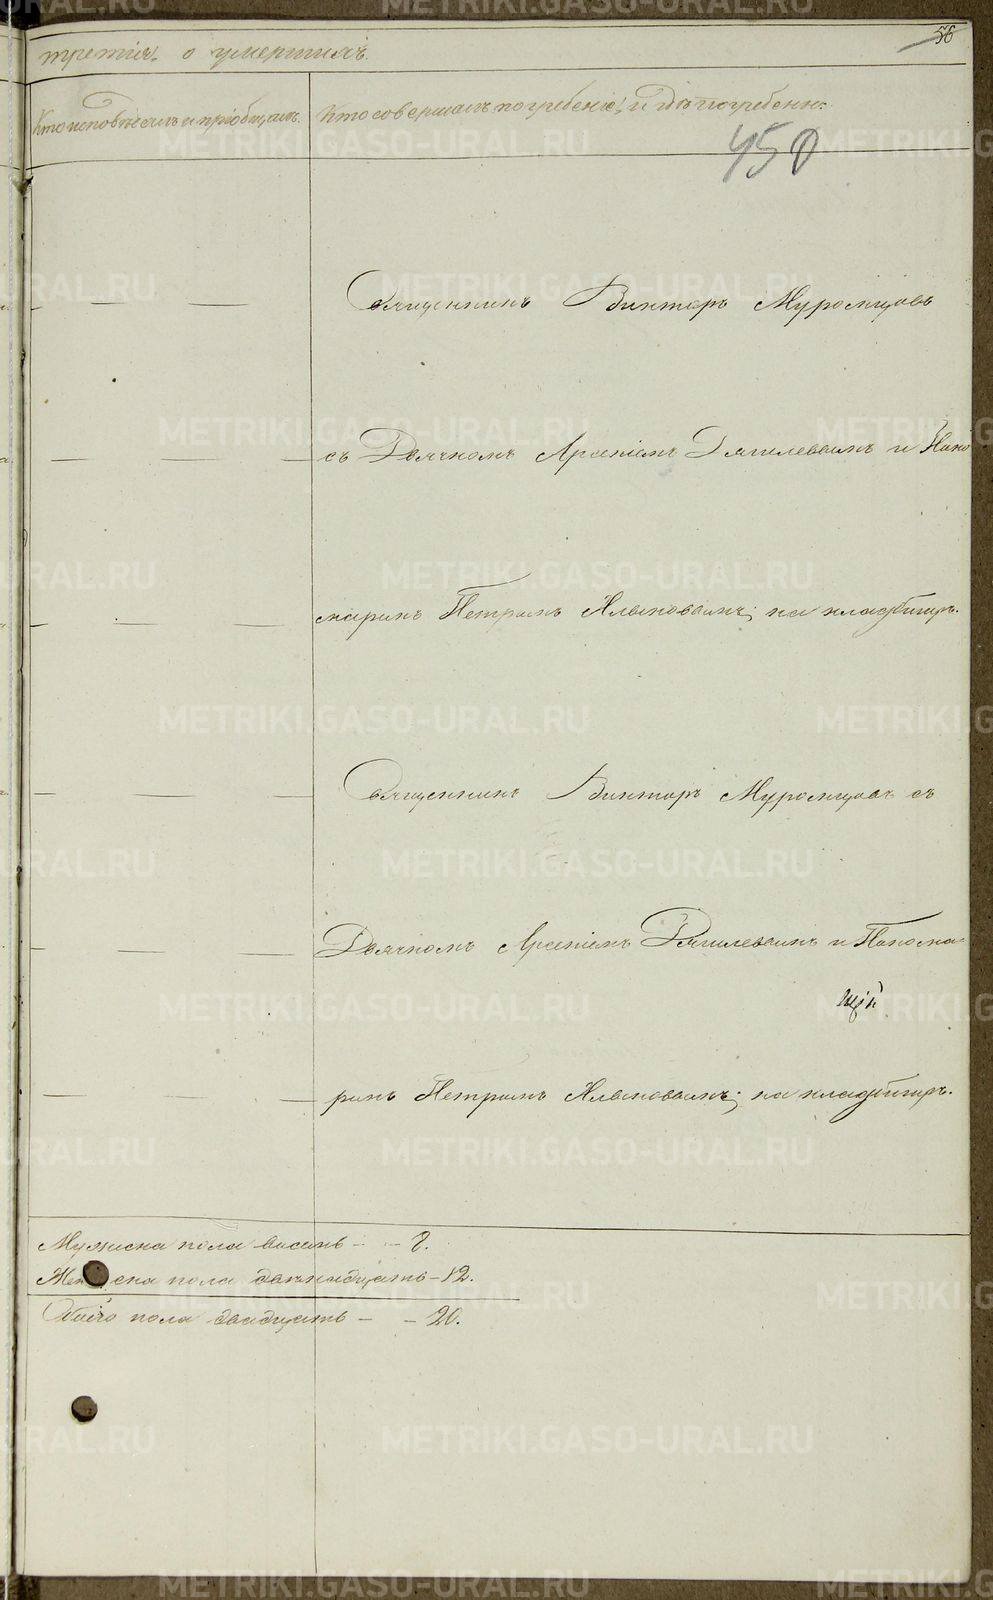 56
третія о умершихъ.
Кто исповѣдалъ и пріобщалъ.
Кто совершалъ погребеніе, и гдѣ погребены.
450
Священникъ Викторъ Муромцовъ
съ Дьячкомъ Арсеніемъ и Поно
маремъ Петромъ на кладбищѣ.
Священникъ Викторъ Муромцовъ съ
Дьячкомъ Арсеніемъ и Понома
щій
ремъ Петромъ на кладбищѣ.
Мужеска пола восемь - - 8.
Женска пола двенадцать - 12.
Обоего пола двадцать - - 20.
METRIKI.GASO-URAL.RU